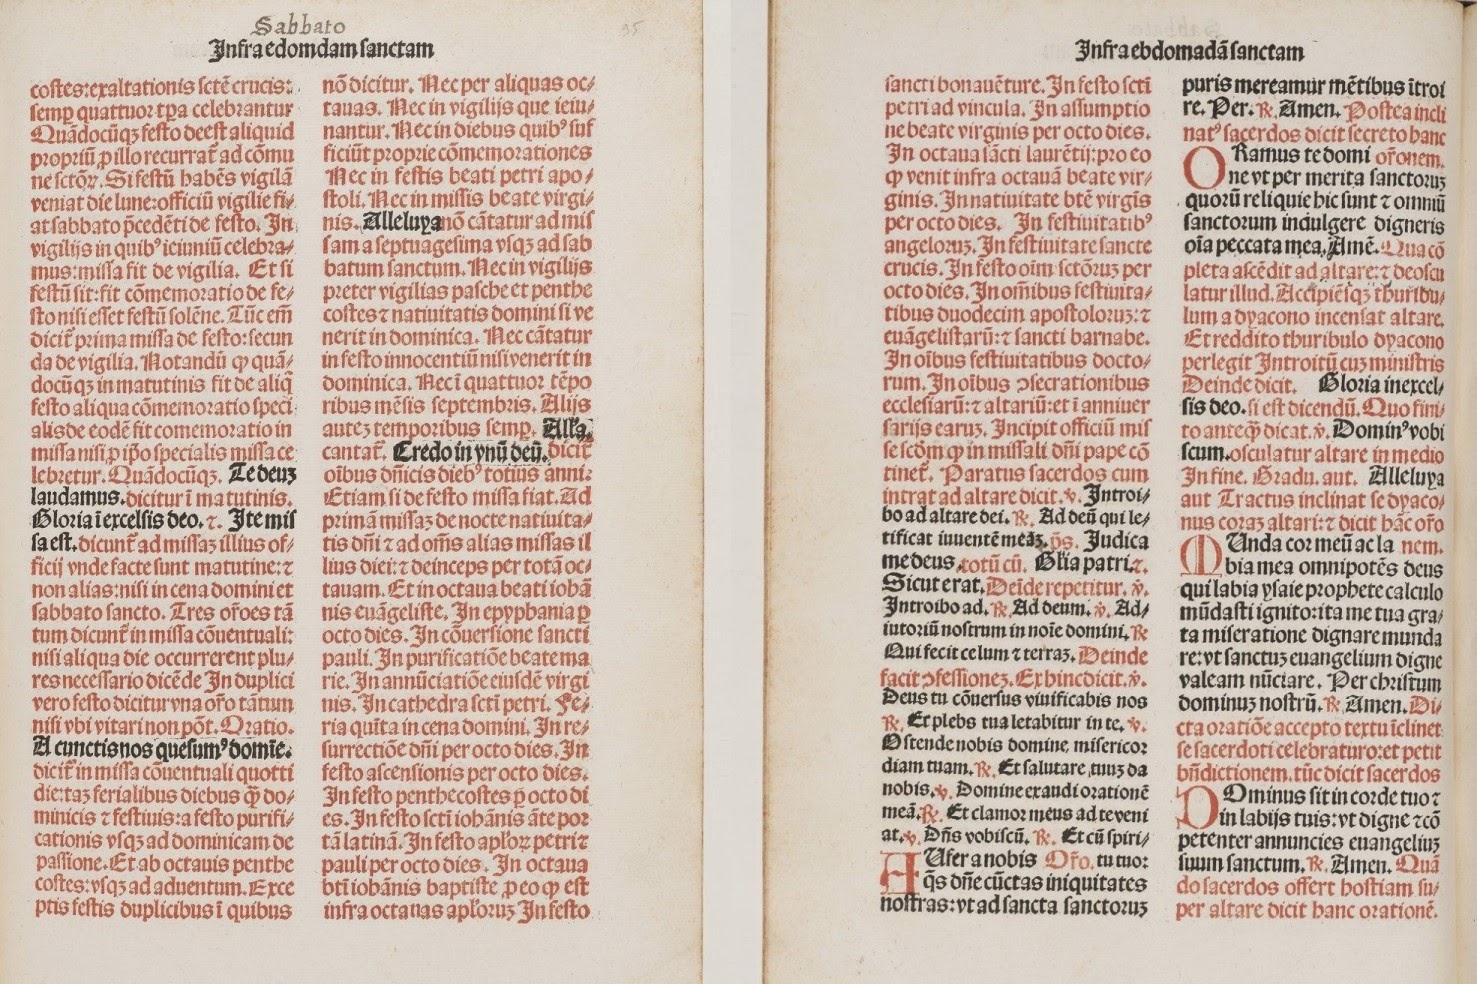 Sabbato
95
Infra edomdam sanctam
costes: exaltationis sctē crucis:
semꝑ quattuor tꝑa celebrantur
Quādocūqꝫ festo deest aliquid
propriū ꝓ illo recurrat̄ ad cōmu
ne sctōꝝ. Si festū habēs vigilā
veniat die lune: officiū vigilie fi⸗
at sabbato p̄cedēti de festo. In
vigilijs in quibꝰ ieiuniū celebra⸗
mus: missa fit de vigilia. Et si
festū sit: fit cōmemoratio de fe⸗
sto nisi esset festū solēne. Tūc em̄
dicit̄ prima missa de festo: secun
da de vigilia. Notandū ꝙ quā⸗
docūqꝫ in matutinis fit de aliq̄
festo aliqua cōmemoratio speci
alis de eodē fit comemoratio in
missa nisi ꝓ ip̄o specialis missa ce
lebretur. Quādocūqꝫ. Te deuꝫ
laudamus. dicitur ī matutinis.
Gloria ī excelsis deo. ⁊. Ite mis
sa est. dicunt̄ ad missaꝫ illius of⸗
ficij vnde facte sunt matutine: ⁊
non alias: nisi in cena domini et
sabbato sancto. Tres or̄oes tā
tum dicunt̄ in missa cōuentuali:
nisi aliqua die occurrerent plu⸗
res necessario dicēde In duplici
vero festo dicitur vna or̄o tātum
nisi vbi vitari non pōt. Oratio.
A cunctis nos quesumꝰ domīe.
dicit̄ in missa cōuentuali quotti
die: taꝫ ferialibus diebus q̄ꝫ do⸗
minicis ⁊ festiuis: a festo purifi⸗
cationis vsqꝫ ad dominicam de
passione. Et ab octauis penthe
costes: vsqꝫ ad aduentum. Exce
ptis festis duplicibus ī quibus
nō dicitur. Nec per aliquas oc⸗
tauas. Nec in vigilijs que ieiu⸗
nantur. Nec in diebus quibꝰ suf
ficiūt proprie cōmemorationes
Nec in festis beati petri apo⸗
stoli. Nec in missis beate virgi⸗
nis. Alleluya nō cātatur ad mis
sam a septuagesima vsqꝫ ad sab
batum sanctum. Nec in vigilijs
preter vigilias pasche et penthe
costes ⁊ natiuitatis domini si ve
nerit in dominica. Nec cātatur
in festo innocentiū nisi venerit in
dominica. Nec ī quattuor tēpo
ribus mēsis septembris. Alijs
auteꝫ temporibus semꝑ. All'a.
cantat̄. Credo in vnū deū. dicit̄
oībus dn̄icis diebꝰ totius anni:
Etiam si de festo missa fiat. Ad
primā missaꝫ de nocte natiuita⸗
tis dn̄i ⁊ ad om̄s alias missas il
lius diei: ⁊ deinceps per totā oc⸗
tauam. Et in octaua beati iohā
nis euāgeliste. In epyphania ꝑ
octo dies. In cōuersione sancti
pauli. In purificatiōe beate ma
rie. In annūciatiōe eiusdē virgi
nis. In cathedra scti petri. Fe⸗
ria quīta in cena domini. In re⸗
surrectiōe dn̄i per octo dies. In
festo ascensionis per octo dies.
In festo penthecostes ꝑ octo di
es. In festo scti iohānis āte por
tā latinā. In festo apl'oꝝ petri ⁊
pauli per octo dies. In octaua
bt̄i iohānis baptiste ꝓ eo ꝙ est
infra octauas apl'oruꝫ In festo
Infra ebdomadā sanctam
sancti bonauēture. In festo scti
petri ad vincula. In assumptio
ne beate virginis per octo dies.
In octaua sācti laurētij: pro eo
ꝙ venit infra octauā beate vir⸗
ginis. In natiuitate btē virgīs
per octo dies. In festiuitatibꝰ
angeloruꝫ. In festiuitate sancte
crucis. In festo oīm sctōruꝫ per
octo dies. In om̄ibus festiuita⸗
tibus duodecim apostoloruꝫ: ⁊
euāgelistarū: ⁊ sancti barnabe.
In oībus festiuitatibus docto⸗
rum. In oībus ꝯsecrationibus
ecclesiarū: ⁊ altariū: et ī anniuer
sarijs earuꝫ. Incipit officiū mis
se scdm̄ ꝙ in missali dn̄i pape cō
tinet̄. Paratus sacerdos cum
intrat ad altare dicit. ℣. Introi⸗
bo ad altare dei. ℟. Ad deū qui le⸗
tificat iuuentē meaꝫ. p̄s. Iudica
me deus. totū cū. Gl'ia patri. ⁊.
Sicut erat. Deīde repetitur. ℣.
Introibo ad. ℟. Ad deum. ℣. Ad⸗
iutoriū nostrum in noīe domini. ℟
Qui fecit celum ⁊ terraꝫ. Deinde
facit ꝯfessioneꝫ. Ex hinc dicit. ℣.
Deus tu cōuersus viuificabis nos
℟. Et plebs tua letabitur in te. ℣.
Ostende nobis domine misericor
diam tuam. ℟. Et salutare tuuꝫ da
nobis. ℣. Domine exaudi orationē
meā. ℟. Et clamor meus ad te veni
at. ℣. Dn̄s vobiscū. ℟. Et cū spiri⸗
AUfer a nobis Or̄o. tu tuo:
q̄s dn̄e cūctas iniquitates
nostras: vt ad sancta sanctoruꝫ
puris mereamur mētibus ītroi
re. Per. ℟. Amen. Postea incli
natꝰ sacerdos dicit secreto hanc
ORamus te domi or̄onem.
ne vt per merita sanctoruꝫ
quorū reliquie hic sunt ⁊ omniū
sanctorum indulgere digneris
oīa peccata mea. Amē. Qua cō
pleta ascēdit ad altare: ⁊ deoscu
latur illud. Accipiēsqꝫ thuribu⸗
lum a dyacono incensat altare.
Et reddito thuribulo dyacono
perlegit Introitū cuꝫ ministris
Deinde dicit. Gloria in excel⸗
sis deo. si est dicendū. Quo fini⸗
to anteq̄ꝫ dicat. ℣. Dominꝰ vobi
scum. osculatur altare in medio
In fine. Gradu. aut. Alleluya
aut Tractus inclinat se dyaco⸗
nus coraꝫ altari: ⁊ dicit hāc or̄o
MUnda cor meū ac la nem.
bia mea omnipotēs deus
qui labia ysaie prophete calculo
mūdasti ignito: ita me tua gra⸗
ta miseratione dignare munda
re: vt sanctuꝫ euangelium digne
valeam nūciare. Per christum
dominuꝫ nostrū. ℟. Amen. Di⸗
cta oratiōe accepto textu īclinet
se sacerdoti celebraturo: et petit
bn̄dictionem. tūc dicit sacerdos
DOminus sit in corde tuo ⁊
in labijs tuis: vt digne ⁊ cō
petenter annuncies euangeliuꝫ
suum sanctum. ℟. Amen. Quā
do sacerdos offert hostiam su⸗
per altare dicit hanc orationē.